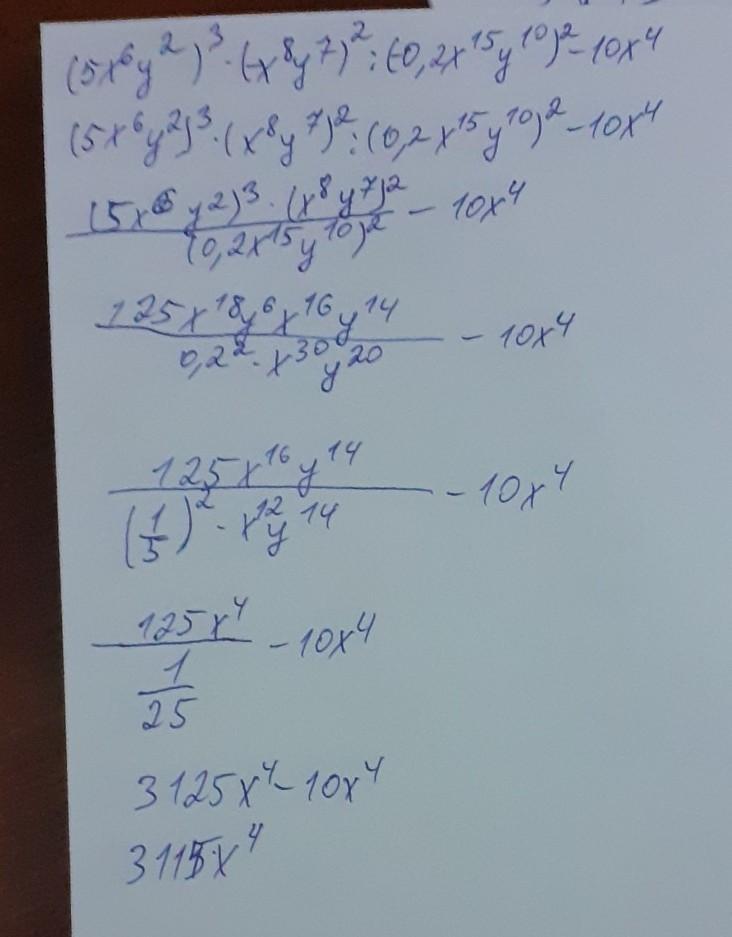 (5x⁶y²)³·(-x⁸y⁷)²:(-0,2x¹⁵y¹⁰)²-10x⁴
(5x⁶y²)³·(x⁸y⁷)²:(0,2x¹⁵y¹⁰)²-10x⁴
(5x⁶y²)³·(x⁸y⁷)²
(0,2x¹⁵y¹⁰)² - 10x⁴
125x¹⁸y⁶x¹⁶y¹⁴
0,2²·x³⁰y²⁰ - 10x⁴
125x¹⁶y¹⁴
(1/5)²·x¹²y¹⁴ - 10x⁴
125x⁴
1/25 - 10x⁴
3125x⁴-10x⁴
3115x⁴